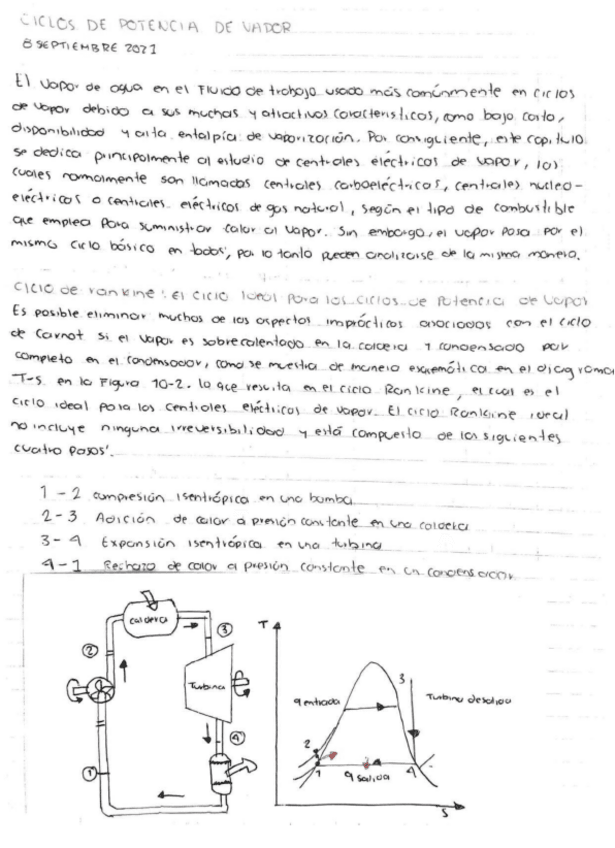 CICLOS DE POTENCIA DE VAPOR
8 SEPTIEMBRE 2021
El vapor de agua en el Fluido de trabajo usado más comúnmente en ciclos
de vapor debido a sus muchas y atractivos características, como bajo costo,
disponibilidad y alta entalpía de vaporización. Por consiguiente, este capitulo
se dedica principalmente al estudio de centrales eléctricas de vapor, las
cuales normalmente son llamadas centrales carboeléctricas, centrales nucleo-
eléctricas o centrales eléctricas de gas natural, según el tipo de combustible
que emplea para suministrar calor al vapor. Sin embargo, el vapor pasa por el
mismo ciclo básico en todas, por lo tanto pueden analizarse de la misma manera.
Ciclo de rankine: El ciclo ideal para los ciclos de Potencia de Vapor
Es posible eliminar muchos de los aspectos imprácticos asociados con el ciclo
de Carnot si el vapor es sobrecalentado en la caldera y condensado por
completo en el condensador, como se muestra de manera esquemática en el diagrama
T-s en la Figura 10-2. lo que resulta en el ciclo Rankine, el cual es el
ciclo ideal para las centrales eléctricas de vapor. El ciclo Rankine ideal
no incluye ninguna irreversibilidad y está compuesto de los siguientes
cuatro pasos:
1 - 2 compresión isentrópica en una bomba
2 - 3 Adición de calor a presión constante en una caldera
3 - 4 Expansión isentrópica en una turbina
4 - 1 Rechazo de calor a presión constante en un condensador
caldera
3
2
Turbina
4
1
T
3
q entrada
Turbina de salida
2
1
q salida
4
S